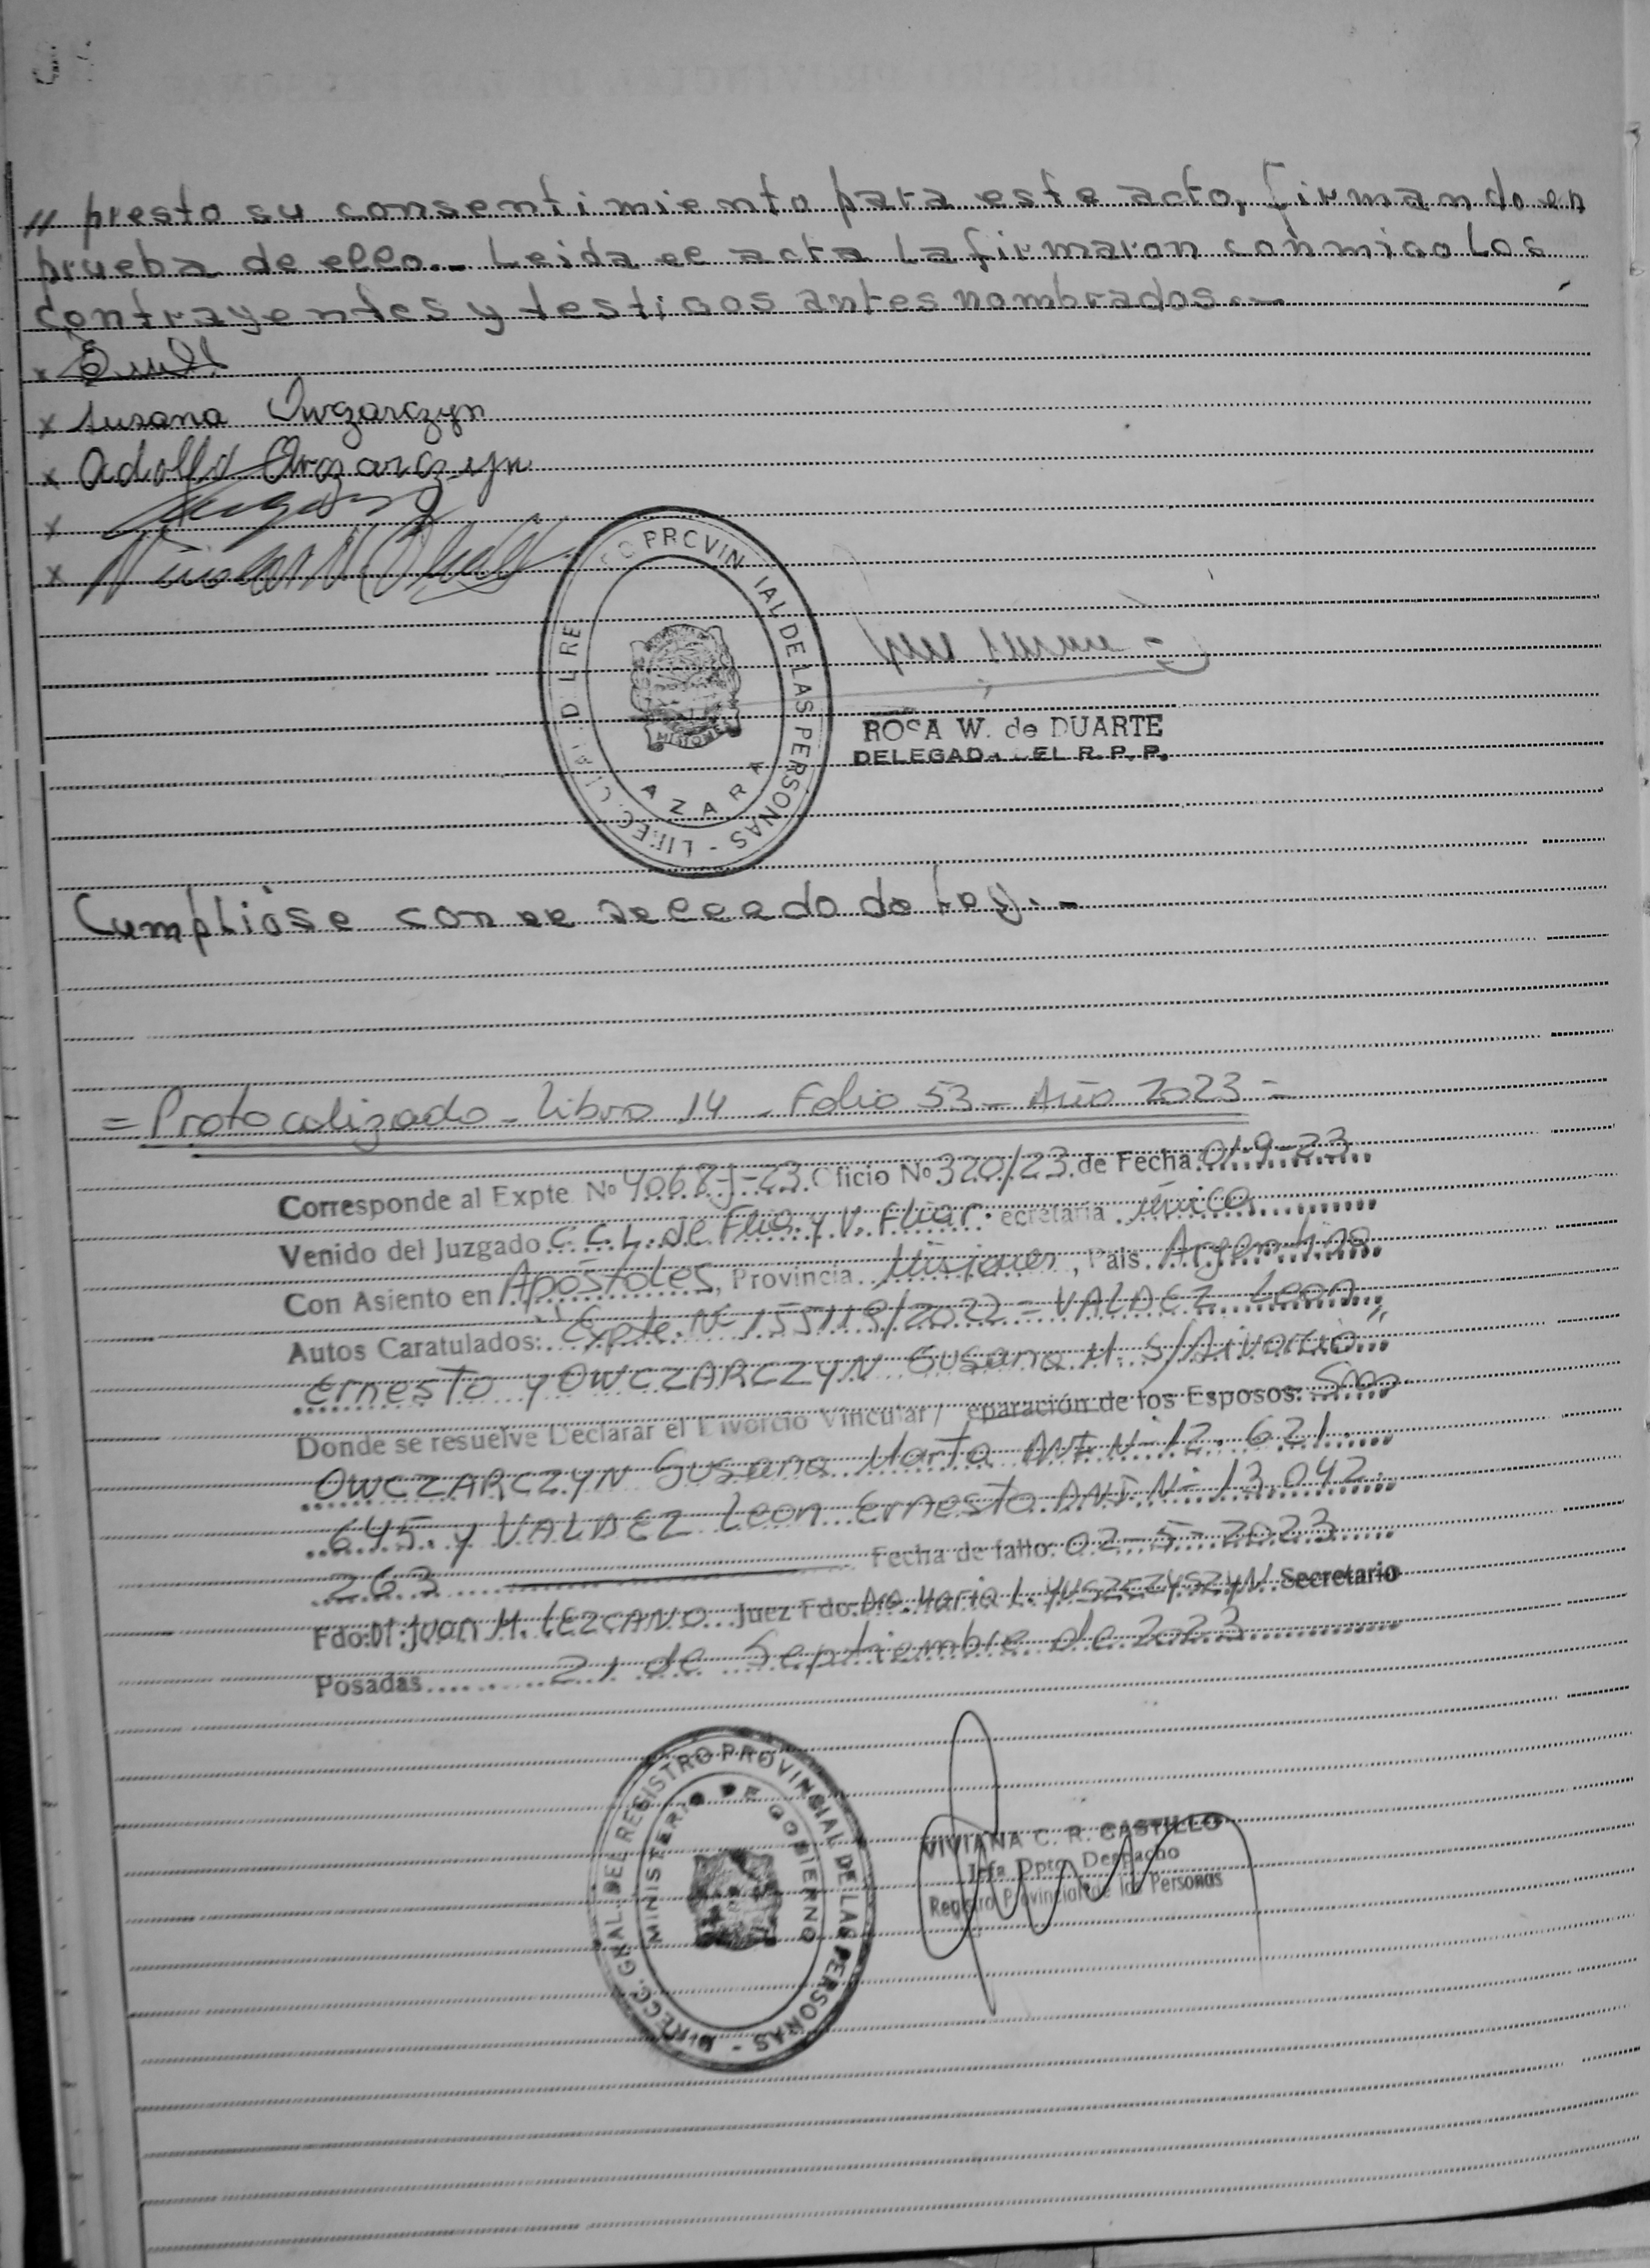 // presto su consentimiento para este acto, firmando en
prueba de ello.- Leida el acta la firmaron conmigo los
contrayentes y testigos antes nombrados.-
x
x Susana Owczarczyn
x Adolfo Owczarczyn
x
x
PROVINCIAL DE LAS PERSONAS
MISIONES
AZARA
ROSA W. de DUARTE
DELEGADA DEL R. P. P.
Cumpliose con el sellado de Ley.-
= Protocolizado - Libro 14 - Folio 53 - Año 2023 =
Corresponde al Expte Nº 4068-J-23 Oficio Nº 320/23 de Fecha 01-9-23
Venido del Juzgado C. C. L. de Flia. y V. Fliar. ecretaria única
Con Asiento en Apóstoles, Provincia Misiones, País Argentina
Autos Caratulados: "Expte. Nº 155119/2022 = VALDEZ Leon
Ernesto y OWCZARCZYN Susana M. S/Divorcio"
Donde se resuelve Declarar el Divorcio Vincular/ eparación de los Esposos: Sra.
OWCZARCZYN Susana Marta DNI Nº 12.621.
645. y VALDEZ Leon Ernesto DNI Nº 13.042.
263 Fecha de fallo: 02-5-2023
Fdo: Dr. Juan M. LEZCANO Juez Fdo: Dra. Maria L. YUSZCZYSZYN Secretario
Posadas 21 de Septiembre de 2023
DIRECC. GRAL. DEL REGISTRO PROVINCIAL DE LAS PERSONAS -
MINISTERIO DE GOBIERNO
VIVIANA C. R. CASTILLO
Jefa Dpto. Despacho
Registro Provincial de las Personas